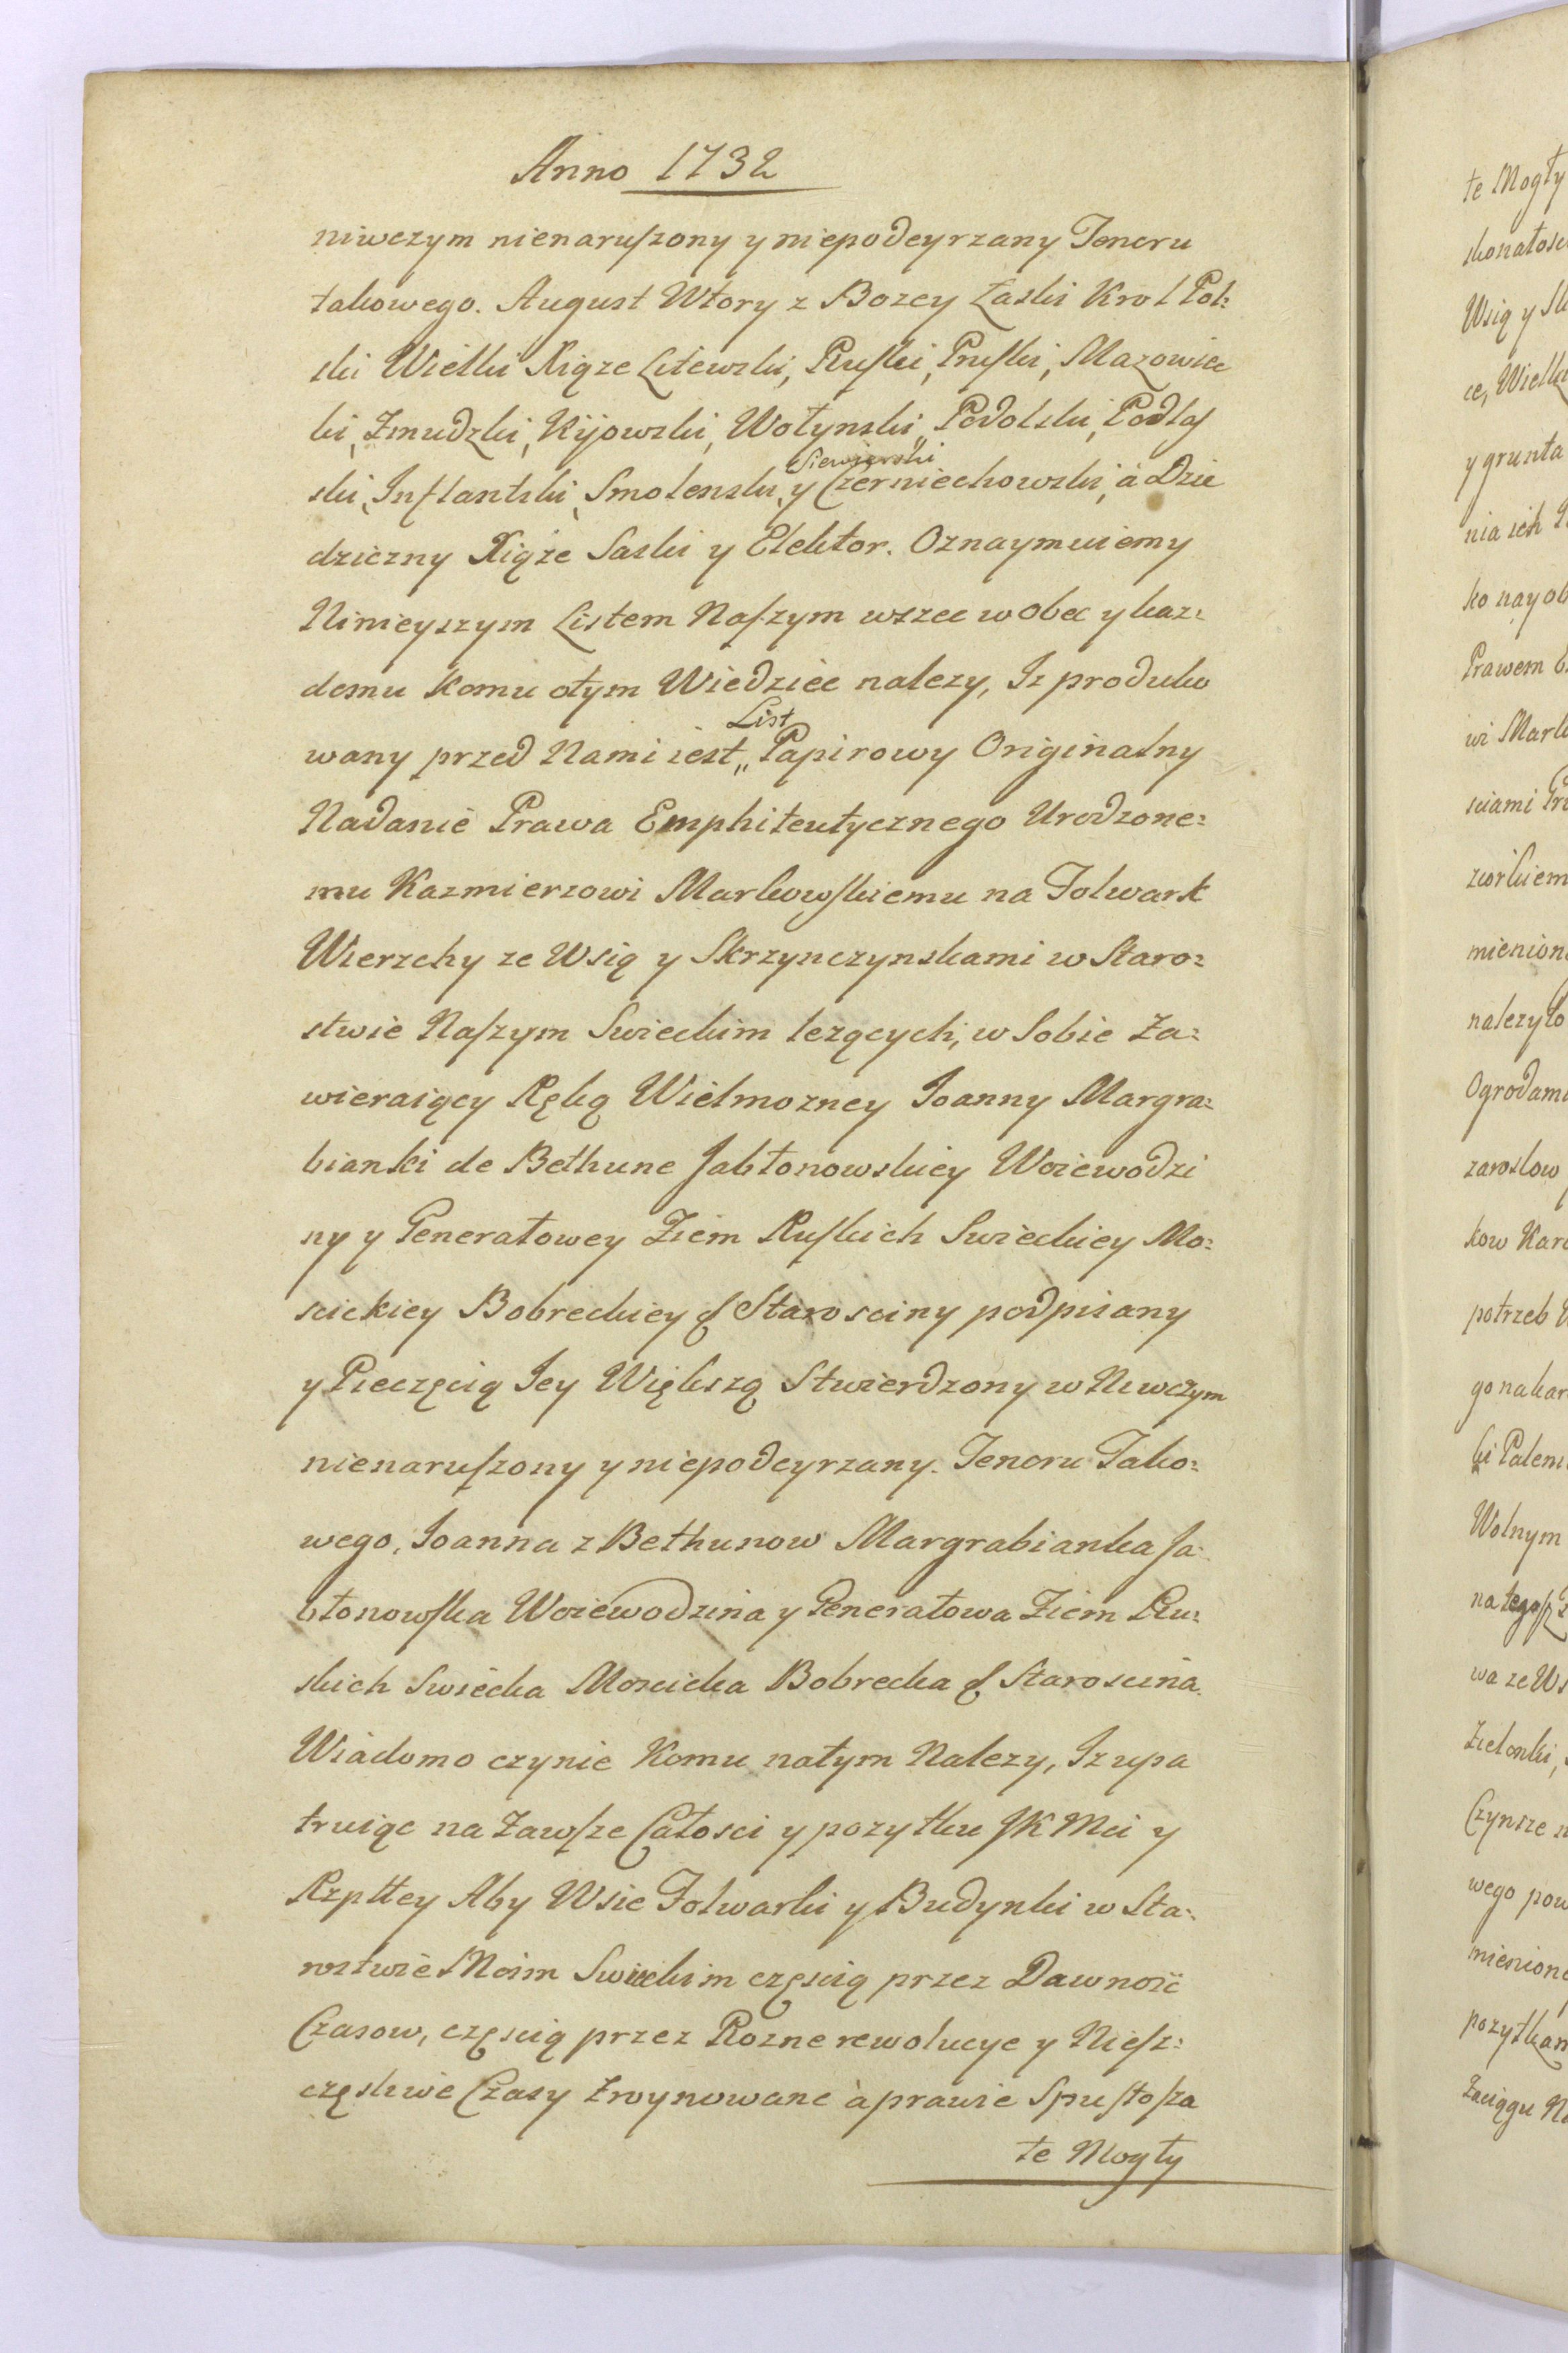 Anno 1732
niwczym nienaruszony y niepodeyrzany Tenoru
takowego. August Wtory z Bozey Łaski Krol Pol:
ski Wielki Xiąze Litewski, Ruski, Pruski, Mazowiec
ki, Zmudzki, Kijowski, Wołynski,, Podolski, Podlas
Siewierski
ski, Inflantski, Smolenski, y Czerniechowski, á Dzie
dziczny Xiąże Saski y Elektor. Oznaymuiemy
Ninieyszym Listem Naszym wszec wobec y kaz:
demu komu otym Wiedziec nalezy, Iz produko
List
wany przed Nami iest,, Papirowy Originalny
Nadanie Prawa Emphiteutycznego Urodzone:
mu Kazmierzowi Markowskiemu na Folwark
Wierzchy ze Wsią y Skrzynczynskami w Staro:
stwie Naszym Swieckim lezących, w Sobie Za:
wieraiący Ręką Wielmozney Joanny Margra:
bianki de Bethune Jabłonowskiey Woiewodzi
ny y Generałowey Ziem Ruskich Swieckiey Mo:
scickiey Bobreckiey & Starosciny podpisany
y Pieczęcią Jey Większą Stwierdzony w Niwczym
nienaruszony y niepodeyrzany. Tenoru Tako:
wego, Joanna z Bethunow Margrabianka Ja:
błonowska Woiewodzina y Generałowa Ziem Ru:
skich Swiecka Moscicka Bobrecka & Staroscina.
Wiadomo czynie Komu natym Nalezy, Iz upa
truiąc na Zawsze Całosci y pozytku JK Mci y
Rzpltey Aby Wsie Folwarki y Budynki w Sta:
rostwie Moim Swieckim częscią przez Dawnosć
Czasow, częscią przez Rozne rewolucye y Niesz:
częsliwe Czasy Zruynowane à prawie Spustosza
łe Mogły
te Mogły
skonałosc
Wsią y Sk
ce, Wielk
y grunta
nia ich
ko nayob
Prawem
wi Mark
sciami Pr
zwskiem
mienion
nalezyło
Ogrodam
zaroslow
kow Kar
potrzeb
go nakar
ki Paleni
Wolnym
na tegosz
wa ze Ws
Zielonki,
Czynsze
wego pow
mieniono
pozytkam
Zaciągu